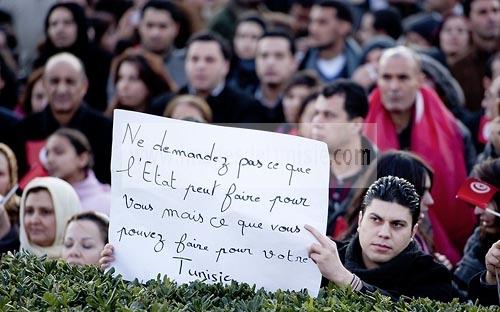 Ne demandez pas ce que
l'Etat peut faire pour
vous mais ce que vous
pouvez faire pour votre
Tunisie